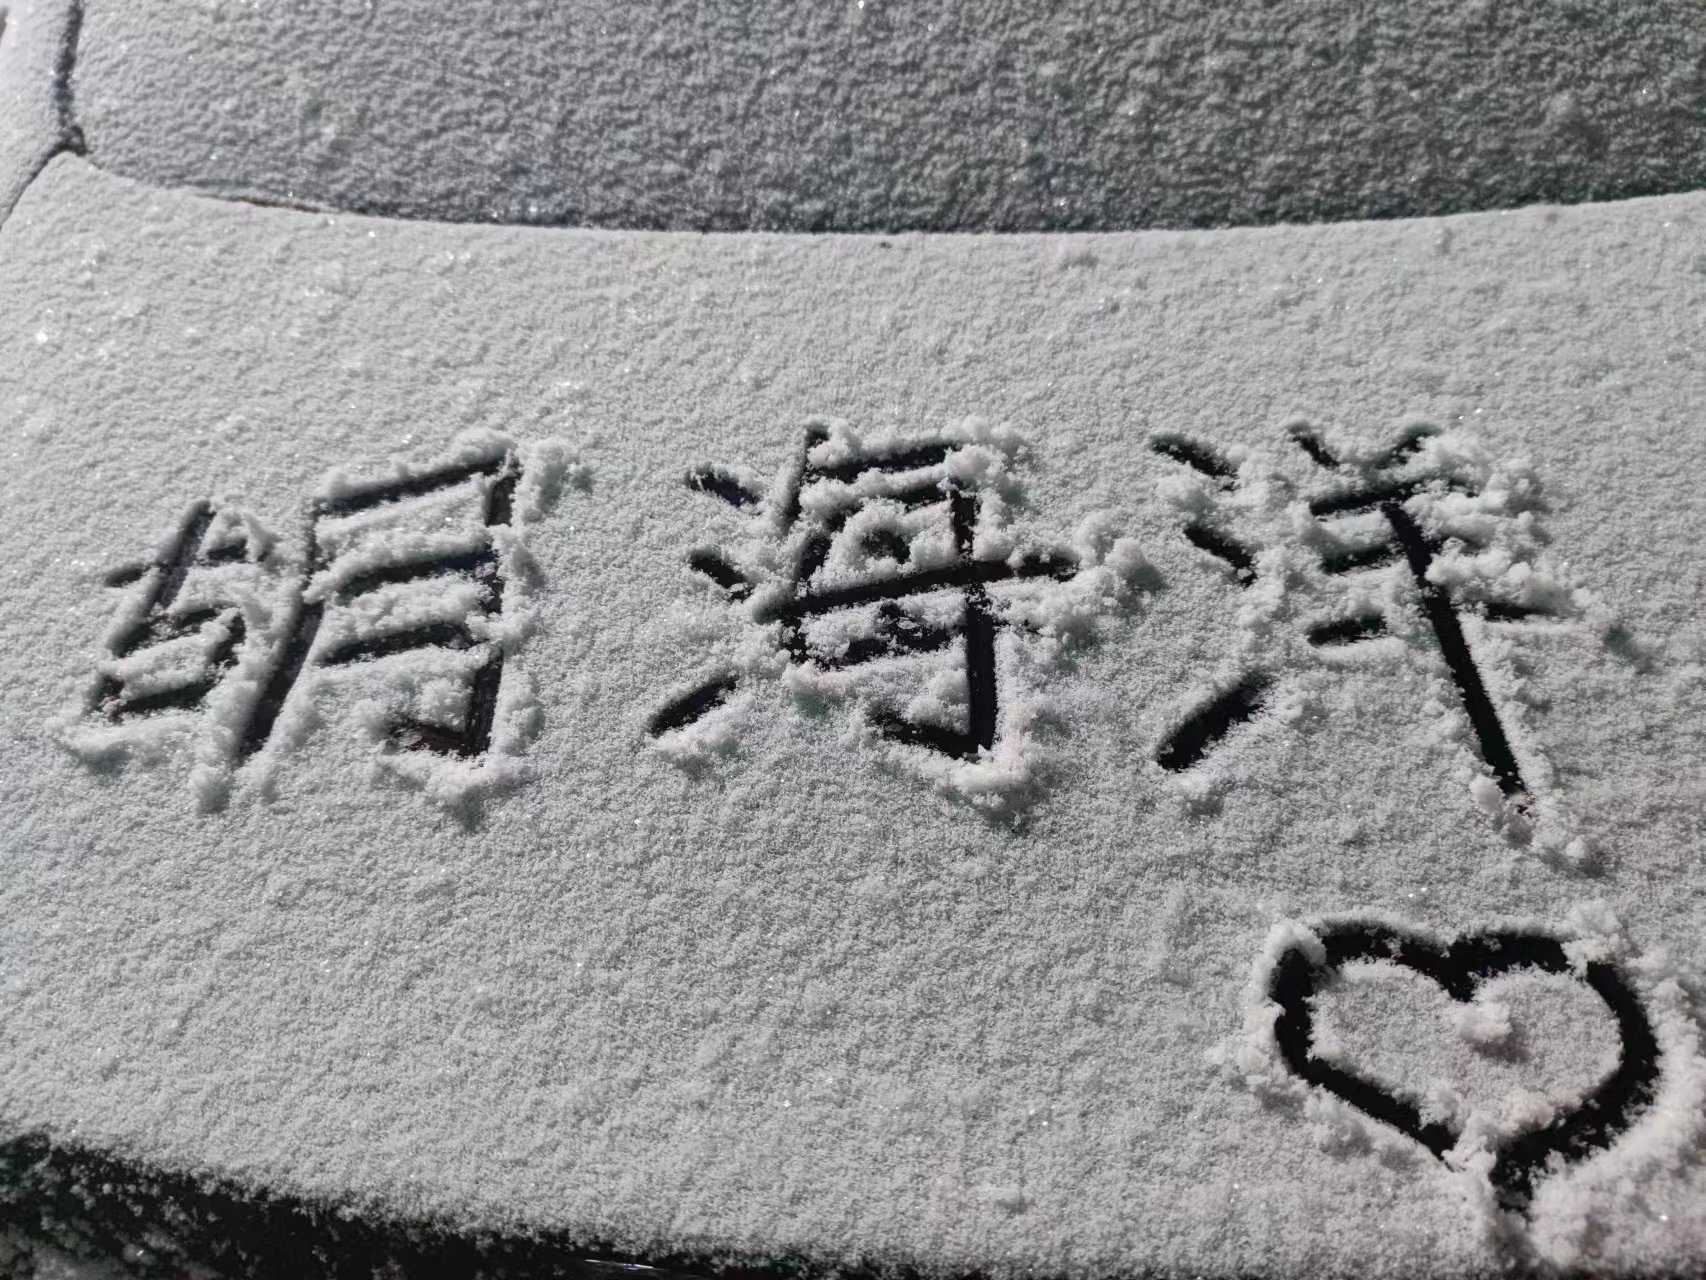 胡海洋